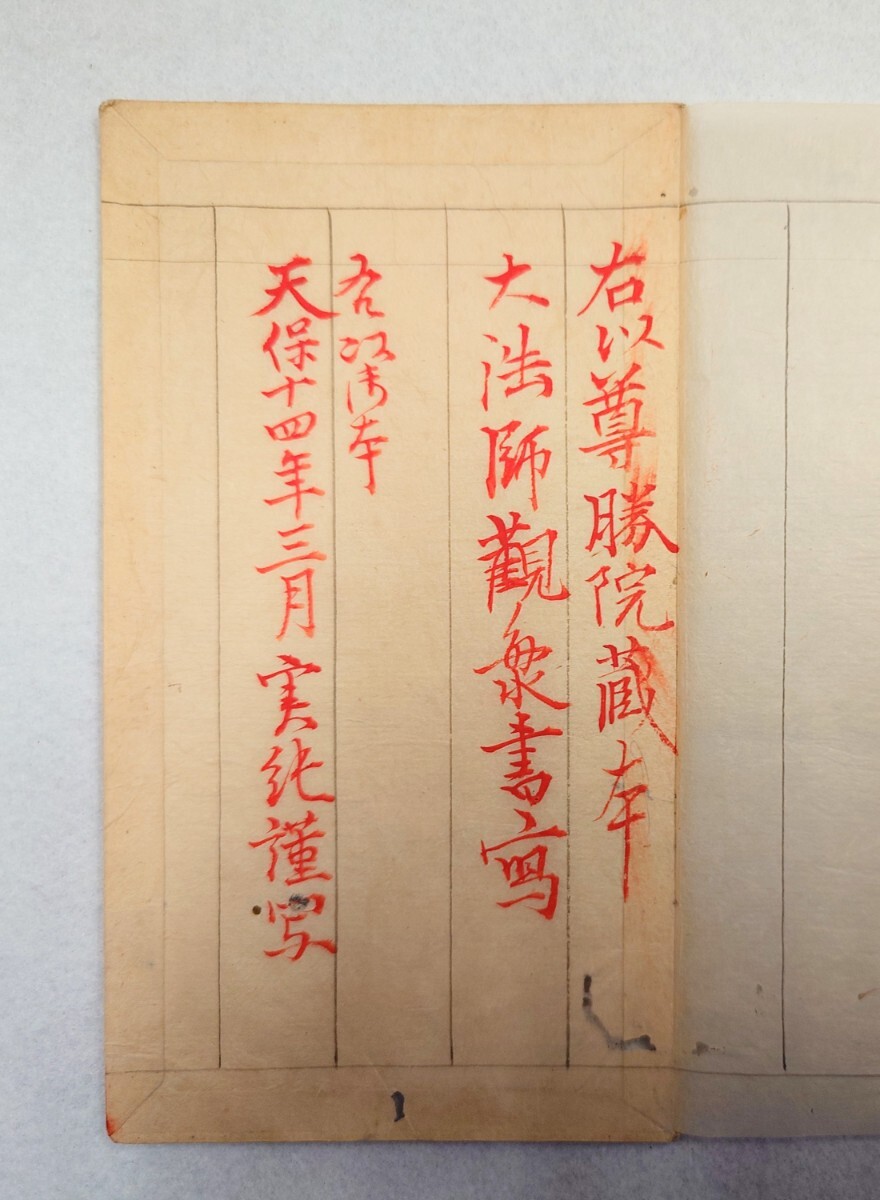 右以尊勝院蔵本
大法師觀衆書写
右以本
天保十四年三月実純謹写